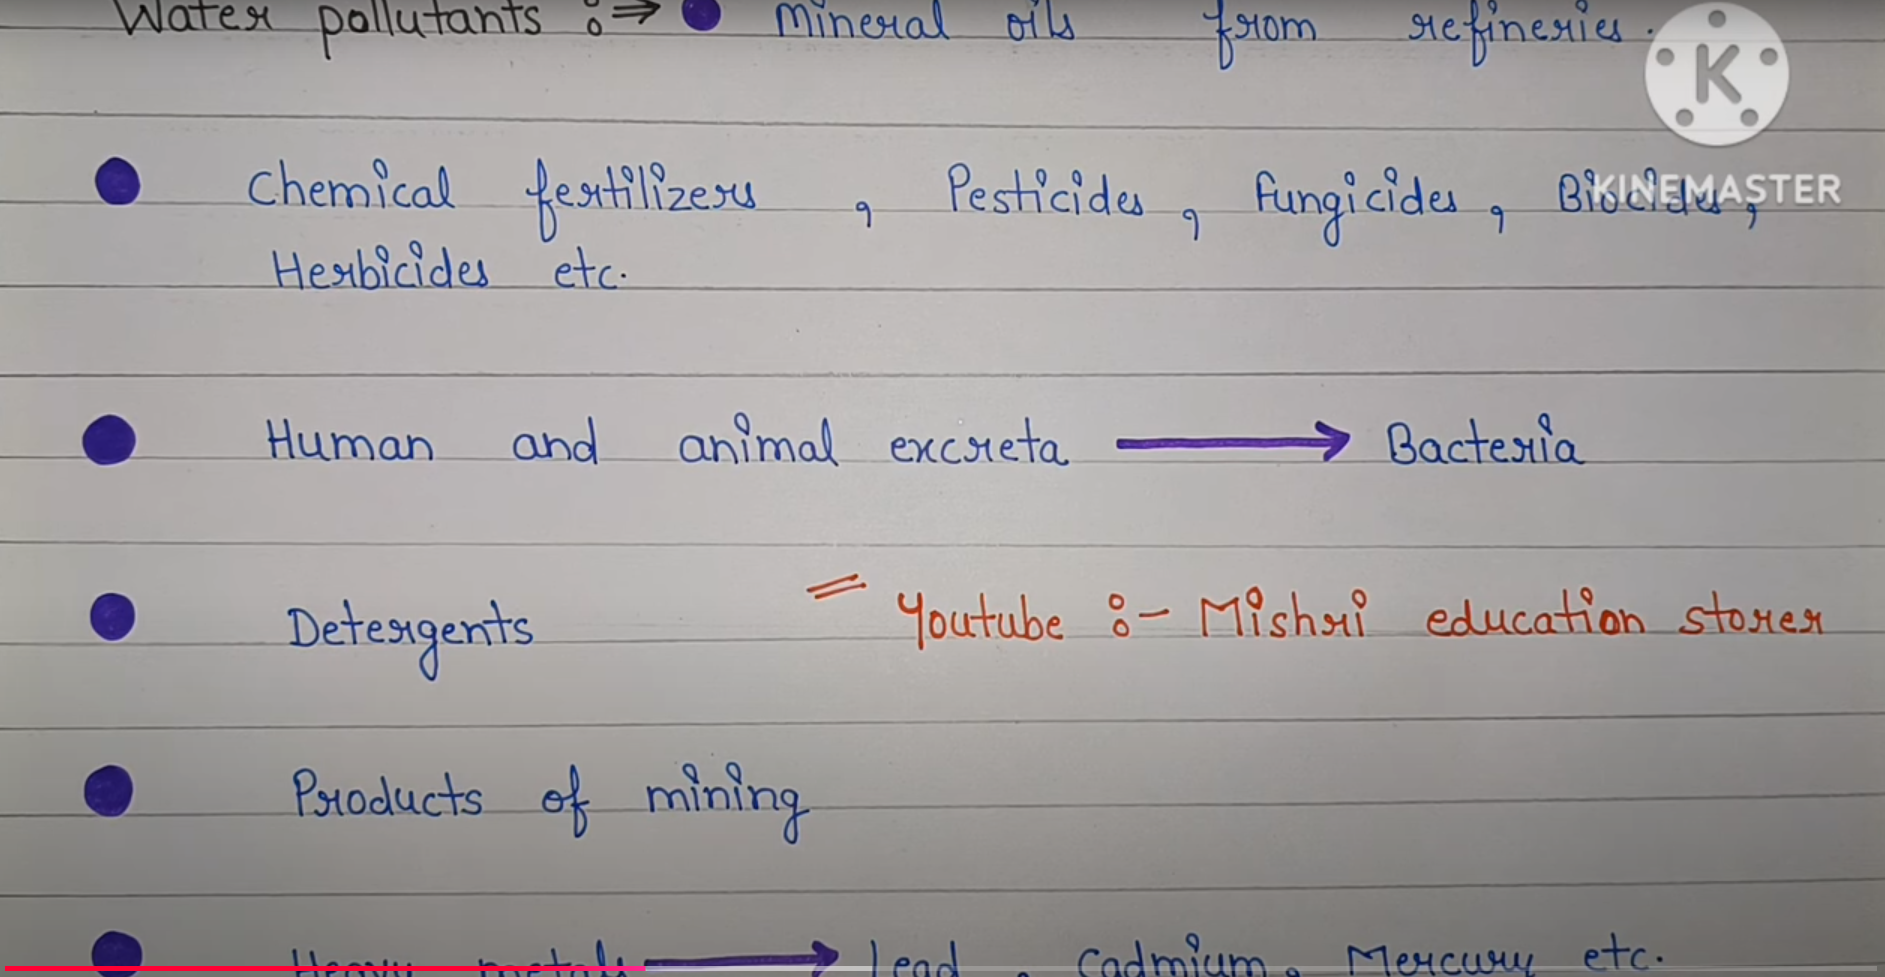 Water pollutants :⇒ ● mineral oils from refineries.
K
● Chemical fertilizers, Pesticides, Fungicides, Biocides,
KINEMASTER
Herbicides etc.
● Human and animal excreta → Bacteria
● Detergents
= Youtube :- Mishri education storer
● Products of mining
● Heavy metals → Lead, Cadmium, Mercury etc.